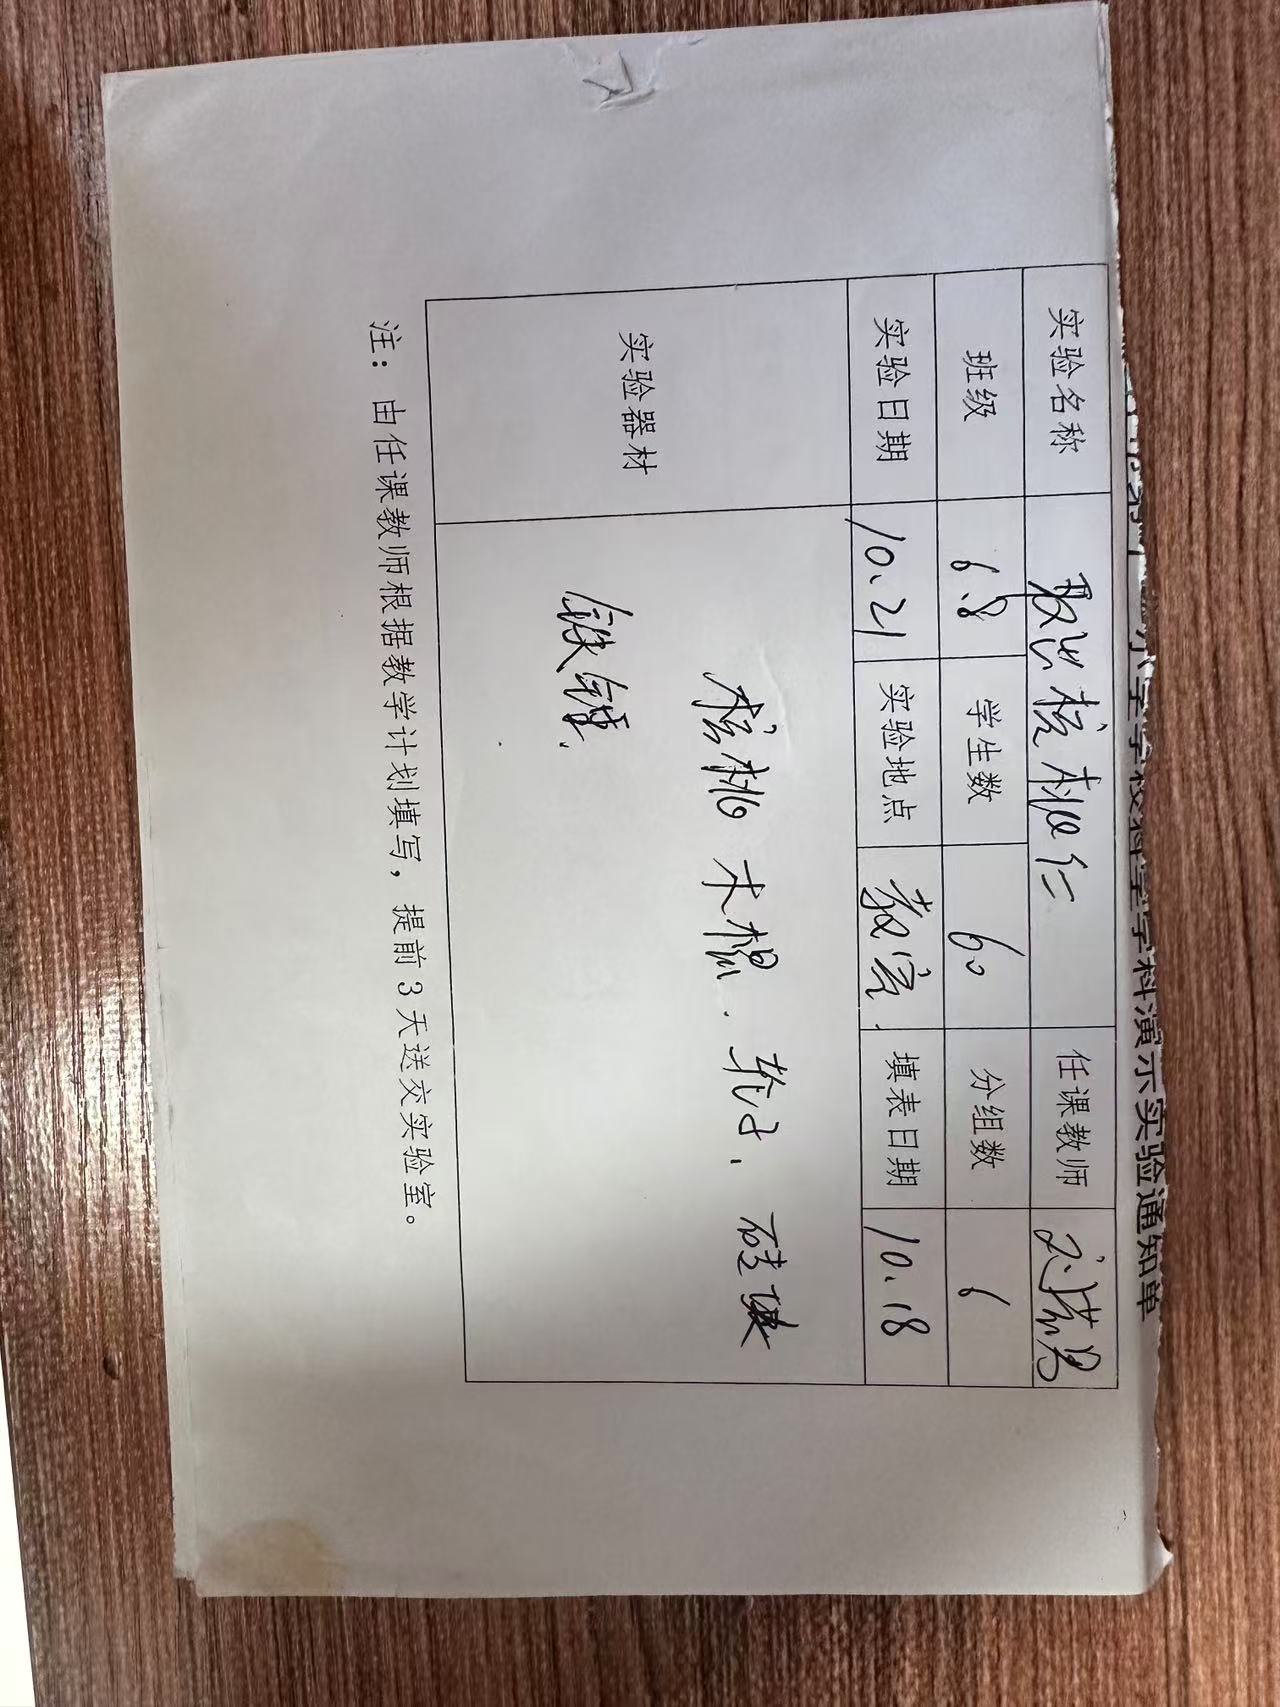 小学学校科学学科演示实验通知单
实验名称 取出核桃仁 任课教师
班级 6.8 学生数 60 分组数 6
实验日期 10.21 实验地点 教室 填表日期 10.18
实验器材 核桃 木棍.
铁锤.
注：由任课教师根据教学计划填写，提前3天送交实验室。